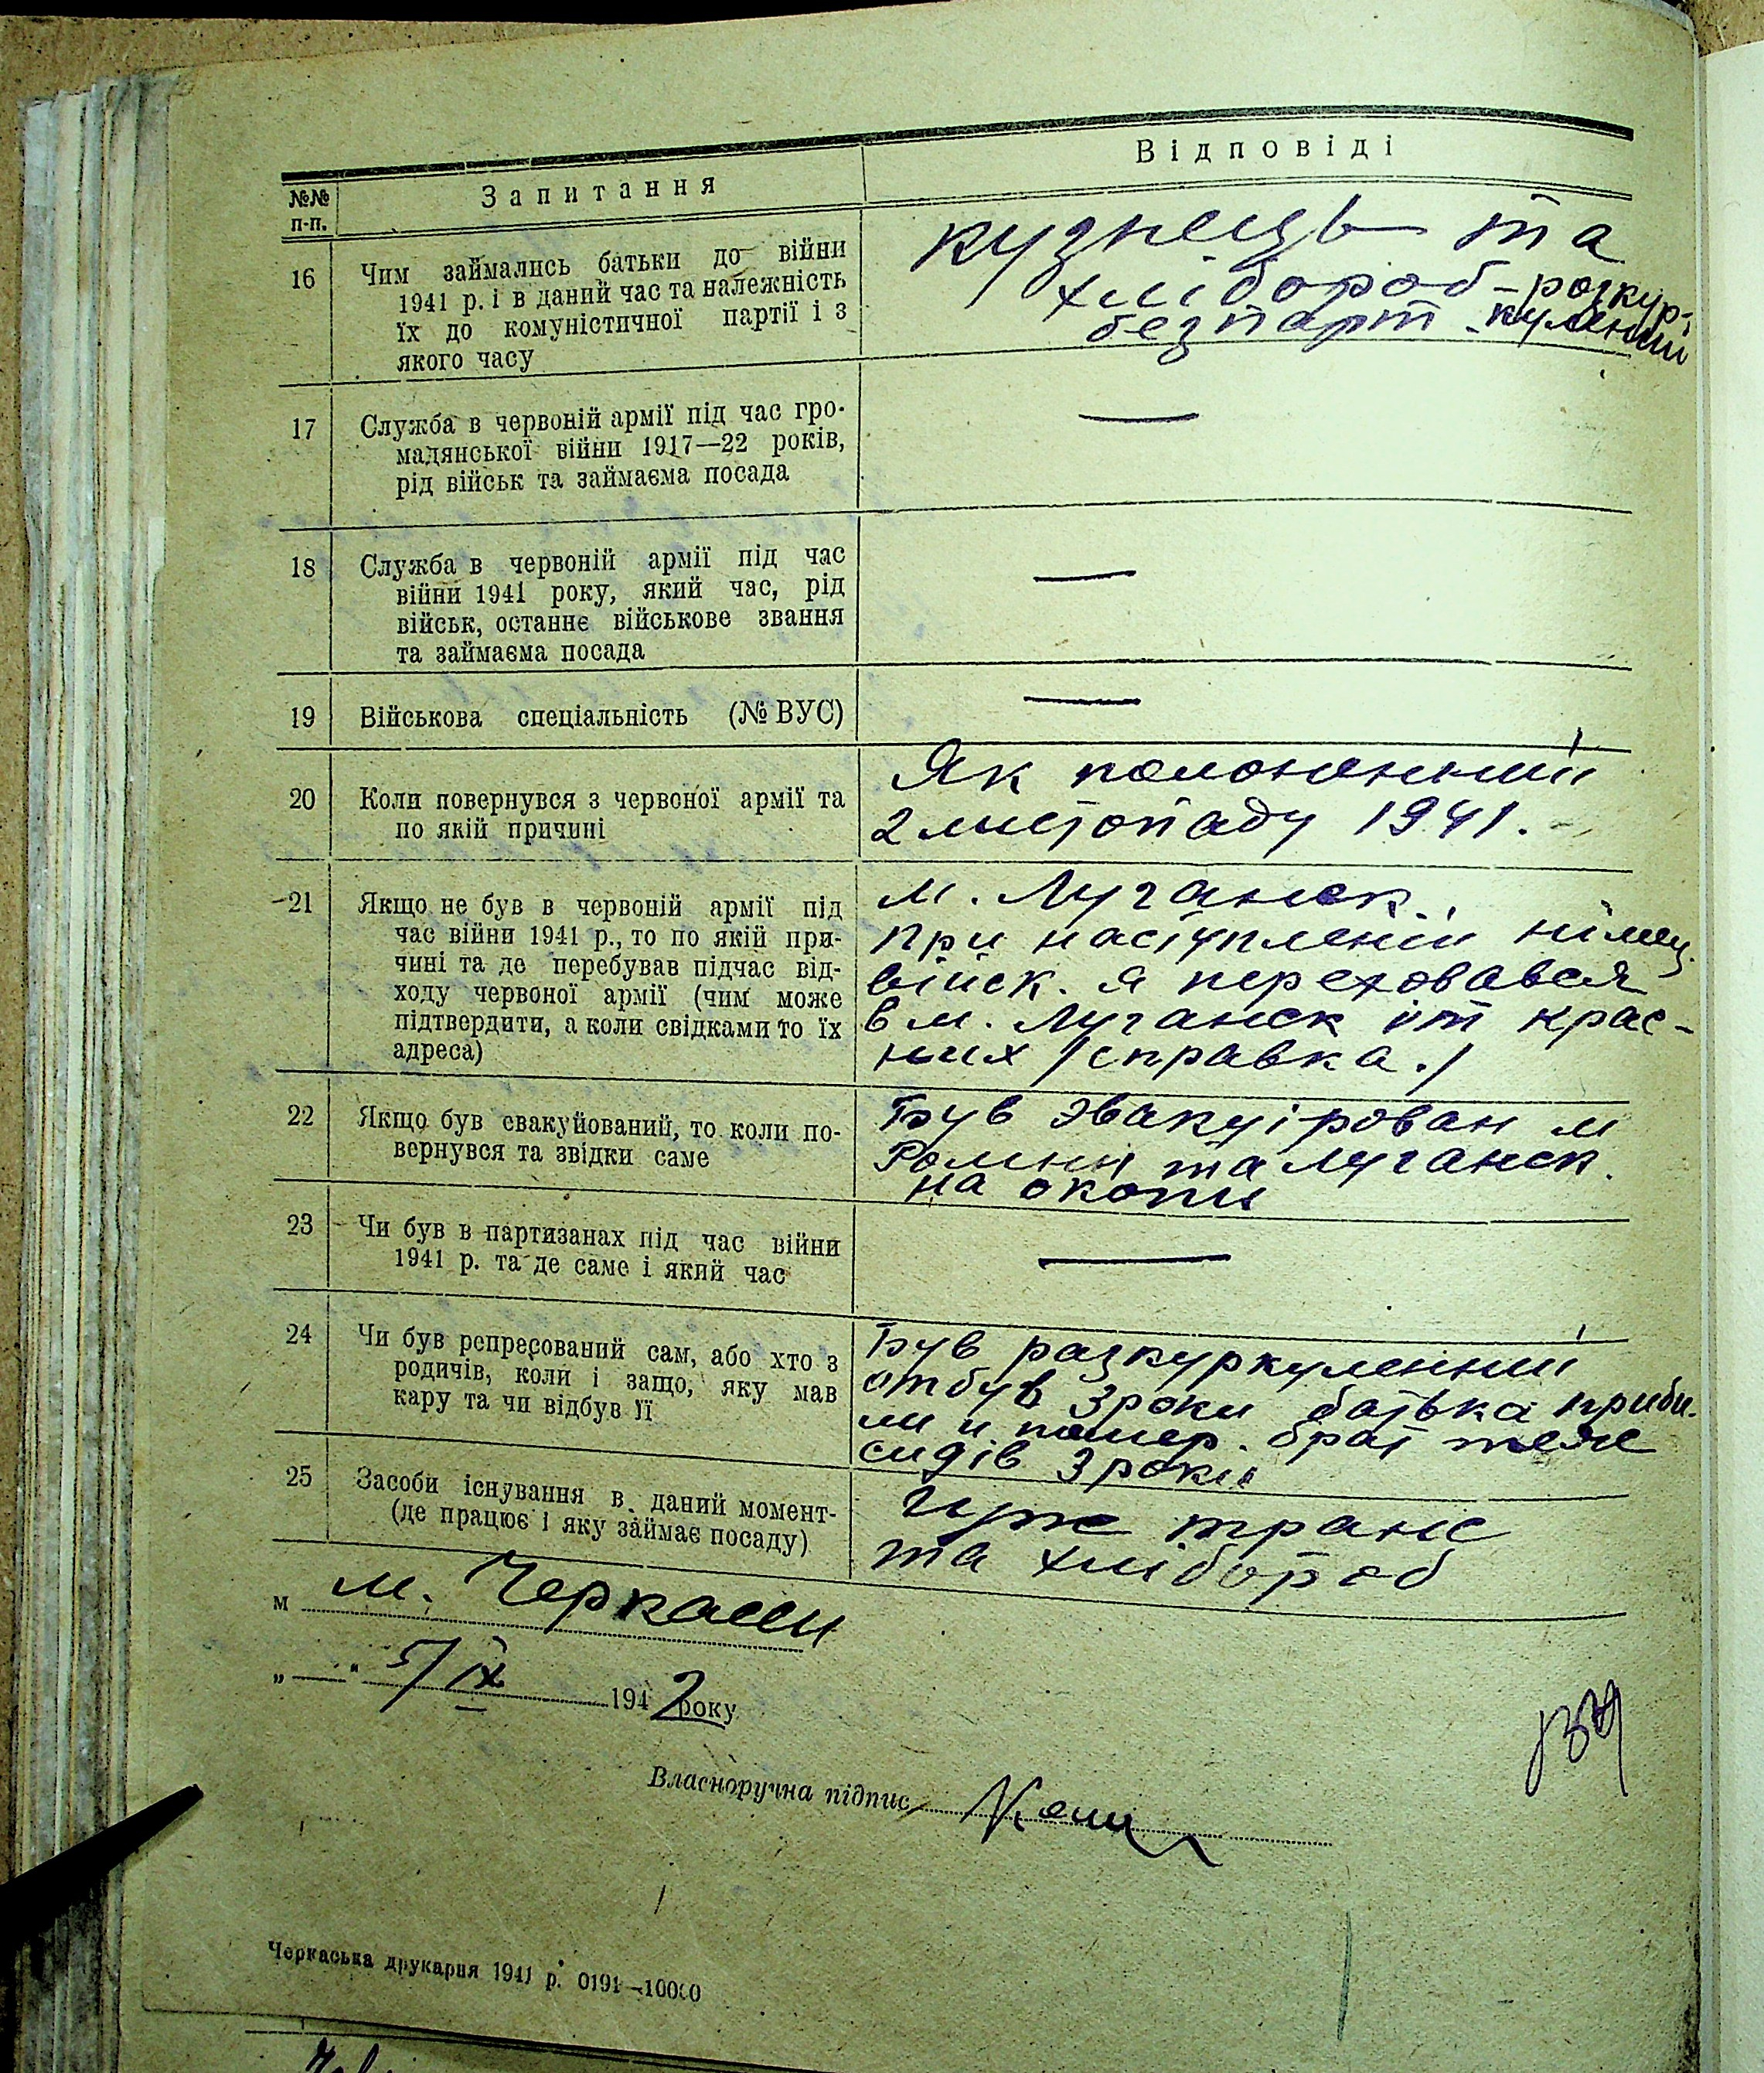 №№ п-п.
Запитання
Відповіді
16
Чим займались батьки до війни
1941 р. і в даний час та належність
їх до комуністичної партії і з
якого часу
кузнець та
хлібороб - розкур-
безпарт. куленний
17
Служба в червоній армії під час гро-
мадянської війни 1917—22 років,
рід військ та займаєма посада
—
18
Служба в червоній армії під час
війни 1941 року, який час, рід
військ, останнє військове звання
та займаєма посада
—
19
Військова спеціальність (№ ВУС)
—
20
Коли повернувся з червоної армії та
по якій причині
Як полоненний
2 листопаду 1941.
21
Якщо не був в червоній армії під
час війни 1941 р., то по якій при-
чині та де перебував підчас від-
ходу червоної армії (чим може
підтвердити, а коли свідками то їх
адреса)
м. Луганск.
при наступлении німец.
війск. я переховався
в м. Луганск от крас-
них /справка./
22
Якщо був евакуйований, то коли по-
вернувся та звідки саме
Був эвакуірован м
Ромни та Луганск.
на окопи
23
Чи був в партизанах під час війни
1941 р. та де саме і який час
—
24
Чи був репресований сам, або хто з
родичів, коли і защо, яку мав
кару та чи відбув її
Був разкуркуленний
отбув 3 роки батька приби-
ли и помер. брат теже
сидів 3 роки
25
Засоби існування в даний момент-
(де працює і яку займає посаду)
транс
та хлібороб
м м. Черкасси
„ — “ 5/IX 1942 року
Власноручна підпис
Черкаська друкарня 1941 р. 0191—10000